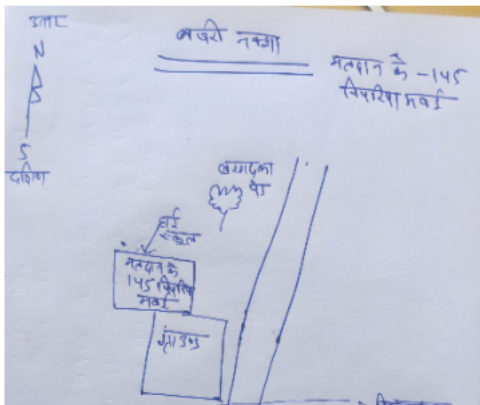 उत्तर
N
S
दक्षिण
नजरी नक्शा
मतदान के -145
पिपरिया मवई
बरगद का
पेड़
हाई
स्कूल
मतदान के
145 पिपरिया
मवई
ग्राउण्ड